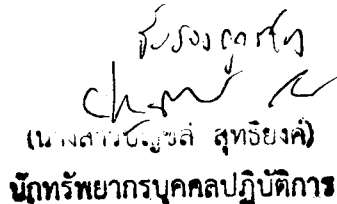 รับรองถูกต้อง
(นางสาว สุทธิยงค์)
นักทรัพยากรบุคคลปฏิบัติการ